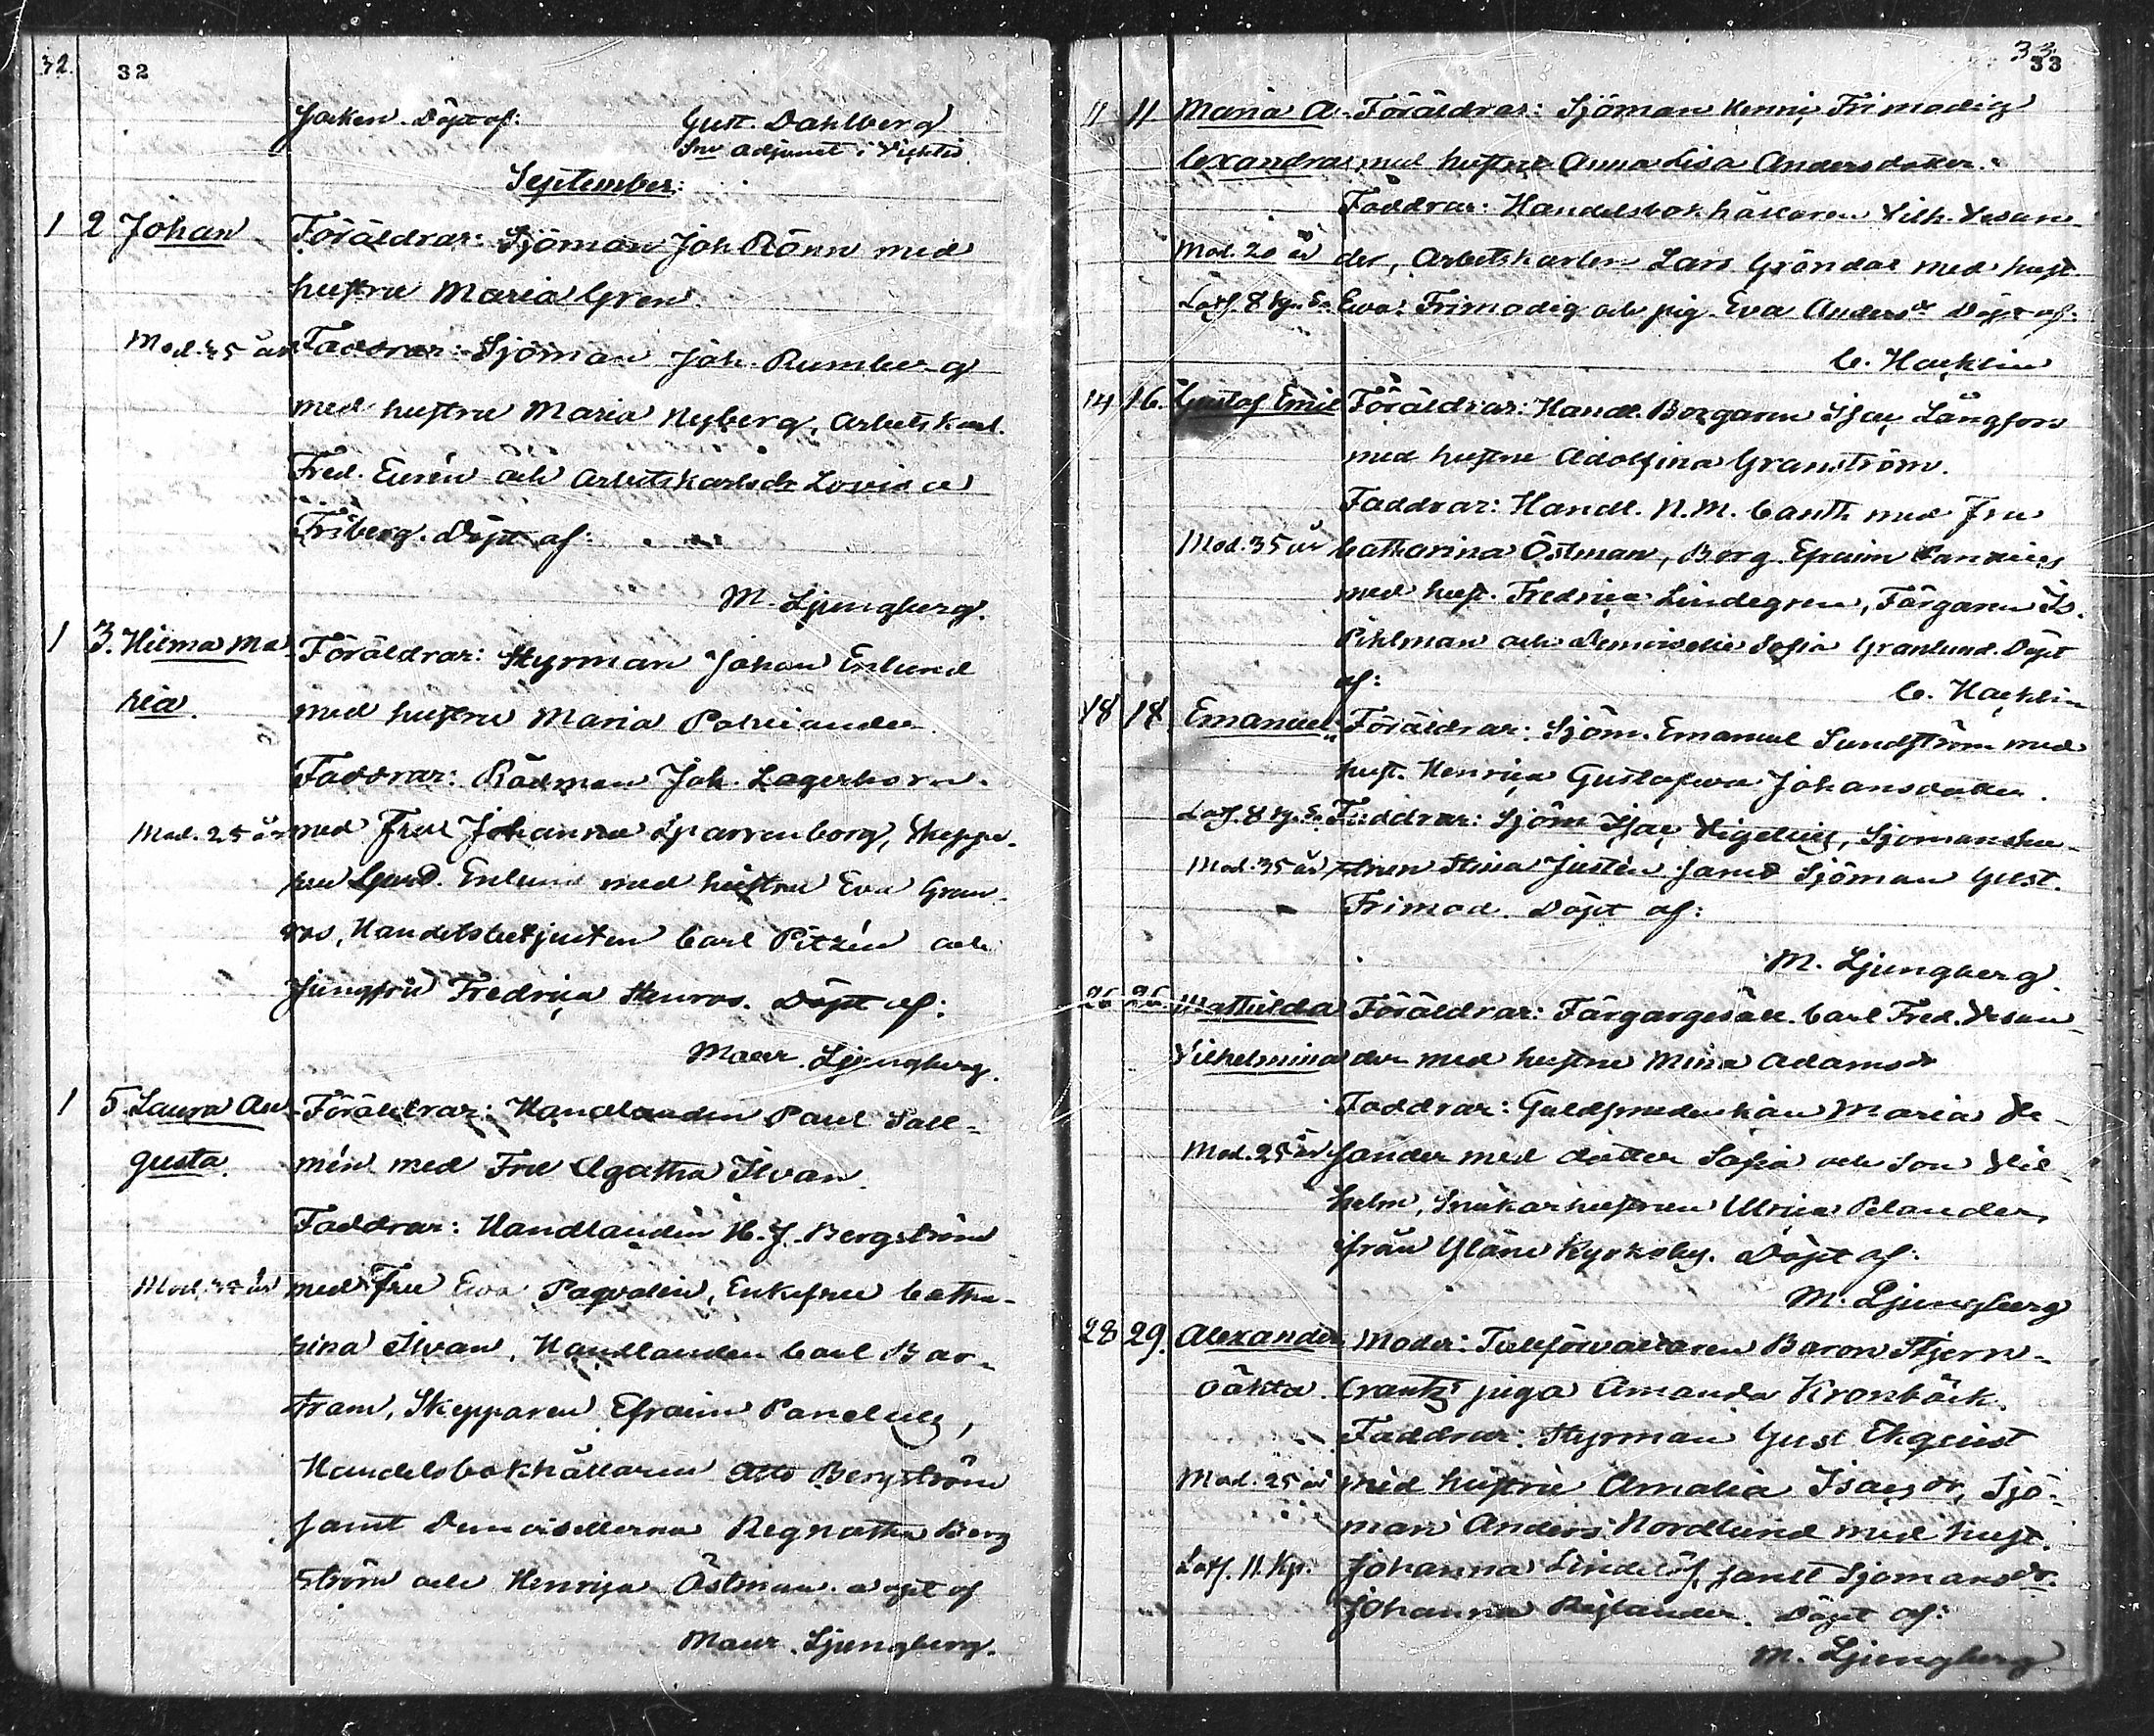 32. 32
Socken. Döpt af: Gust. Dahlberg
Sne adjunct i Vichtis.
September:
1 2 Johan Föräldrar: Sjöman Joh. Rönn med
hustru Maria Gren
Mod. 35 år Faddrar: Sjöman Joh. Rumberg
med hustru Maria Nyberg, Arbetskarl.
Fred. Eurén och Arbetskarlsdr Lovisa
Friberg. Döpt af:
M. Ljungberg.
1 3. Hilma Ma- Föräldrar: Styrman Johan Enlund
ria. med hustru Maria Polviander.
Faddrar: Rådman Joh. Lagerborn.
Mod. 25 år med Fru Johanna Sparrenborg, Skeppa-
ren Gust. Enlund med hustru Eva Gran-
ros, Handelsbetjenten Carl Pitzén och
Jungfru Fredrica Stenros. Döpt af:
Maur. Ljungberg.
1 5. Laura Au- Föräldrar: Handlanden Paul Sall-
gusta. mén med Fru Agatha Ilvan.
Faddrar: Handlanden H. J. Bergström
Mod. år med Fru Eva Paqvalin, Enkefru Catha-
rina Ilvan, Handlanden Carl Bar-
tram, Skepparen Efraim Pandelig,
Handelsbokhållaren Otto Bergström
samt Demoisellerna Regnatha Berg
ström och Henrica Östman. Döpt af
Maur. Ljungberg.
33. 33
11 11 Maria A- Föräldrar: Sjöman Henric Frimodig
lexandra med hustru Anna Lisa Andersdotter.
Faddrar: Handelsbokhållaren Vilh. Vesan-
Mod. 20 år der, Arbetskarlen Lars Gröndal med hust
Lotf. 8 kp. Sä Eva Frimodig och pig. Eva Andersdr Döpt af:
C. Hacklin
14 16. Gustaf Emil Föräldrar: Handl. Borgaren Isac Långfors
med hustru Adolfina Granström.
Faddrar: Handl. N. M. Canth med Fru
Mod. 35 år Catharina Östman, Borg. Efraim
med hust. Fredrica Lindegren, Färgaren Is.
Pihlman och Demoiselle Sofia Granlund. Döpt
af: C. Hacklin
18 18 Emanuel Föräldrar: Sjöm. Emanuel Sundström med
hust. Henrica Gustafwa Johansdotter.
Lotf. 8 kp. Sä Faddrar: Sjöm Isac Vigelius, Sjömanshu-
Mod. 35 år strun Stina Justén samt Sjöman Gust.
Frimod. Döpt af:
M. Ljungberg.
26 26. Mathilda Föräldrar: Färgargesäll. Carl Fred. Vesan-
Vilhelmina der med hustru Mina Adamsdr
Faddrar: Guldsmedenkan Maria Ve-
Mod. 25 år sander med dotter Sofia och Son Vil-
helm, Snickarhustrun Ulrica Pelander,
ifrån Yläne Kyrkoby. Döpt af:
M. Ljungberg
28 29. Alexander Moder: Tullförvaltaren Baron Stjern-
oäkta. Crantz' piga Amanda Kronbäck.
Faddrar: Styrman Gust Ekqvist
Mod. 25 år med hustru Amalia Isacsdr, Sjö-
man Anders Nordlund med hust.
Lotf. 11 Kp. Johanna Lindelöf, samt Sjömansdr.
Johanna Reglander. Döpt af:
M. Ljungberg